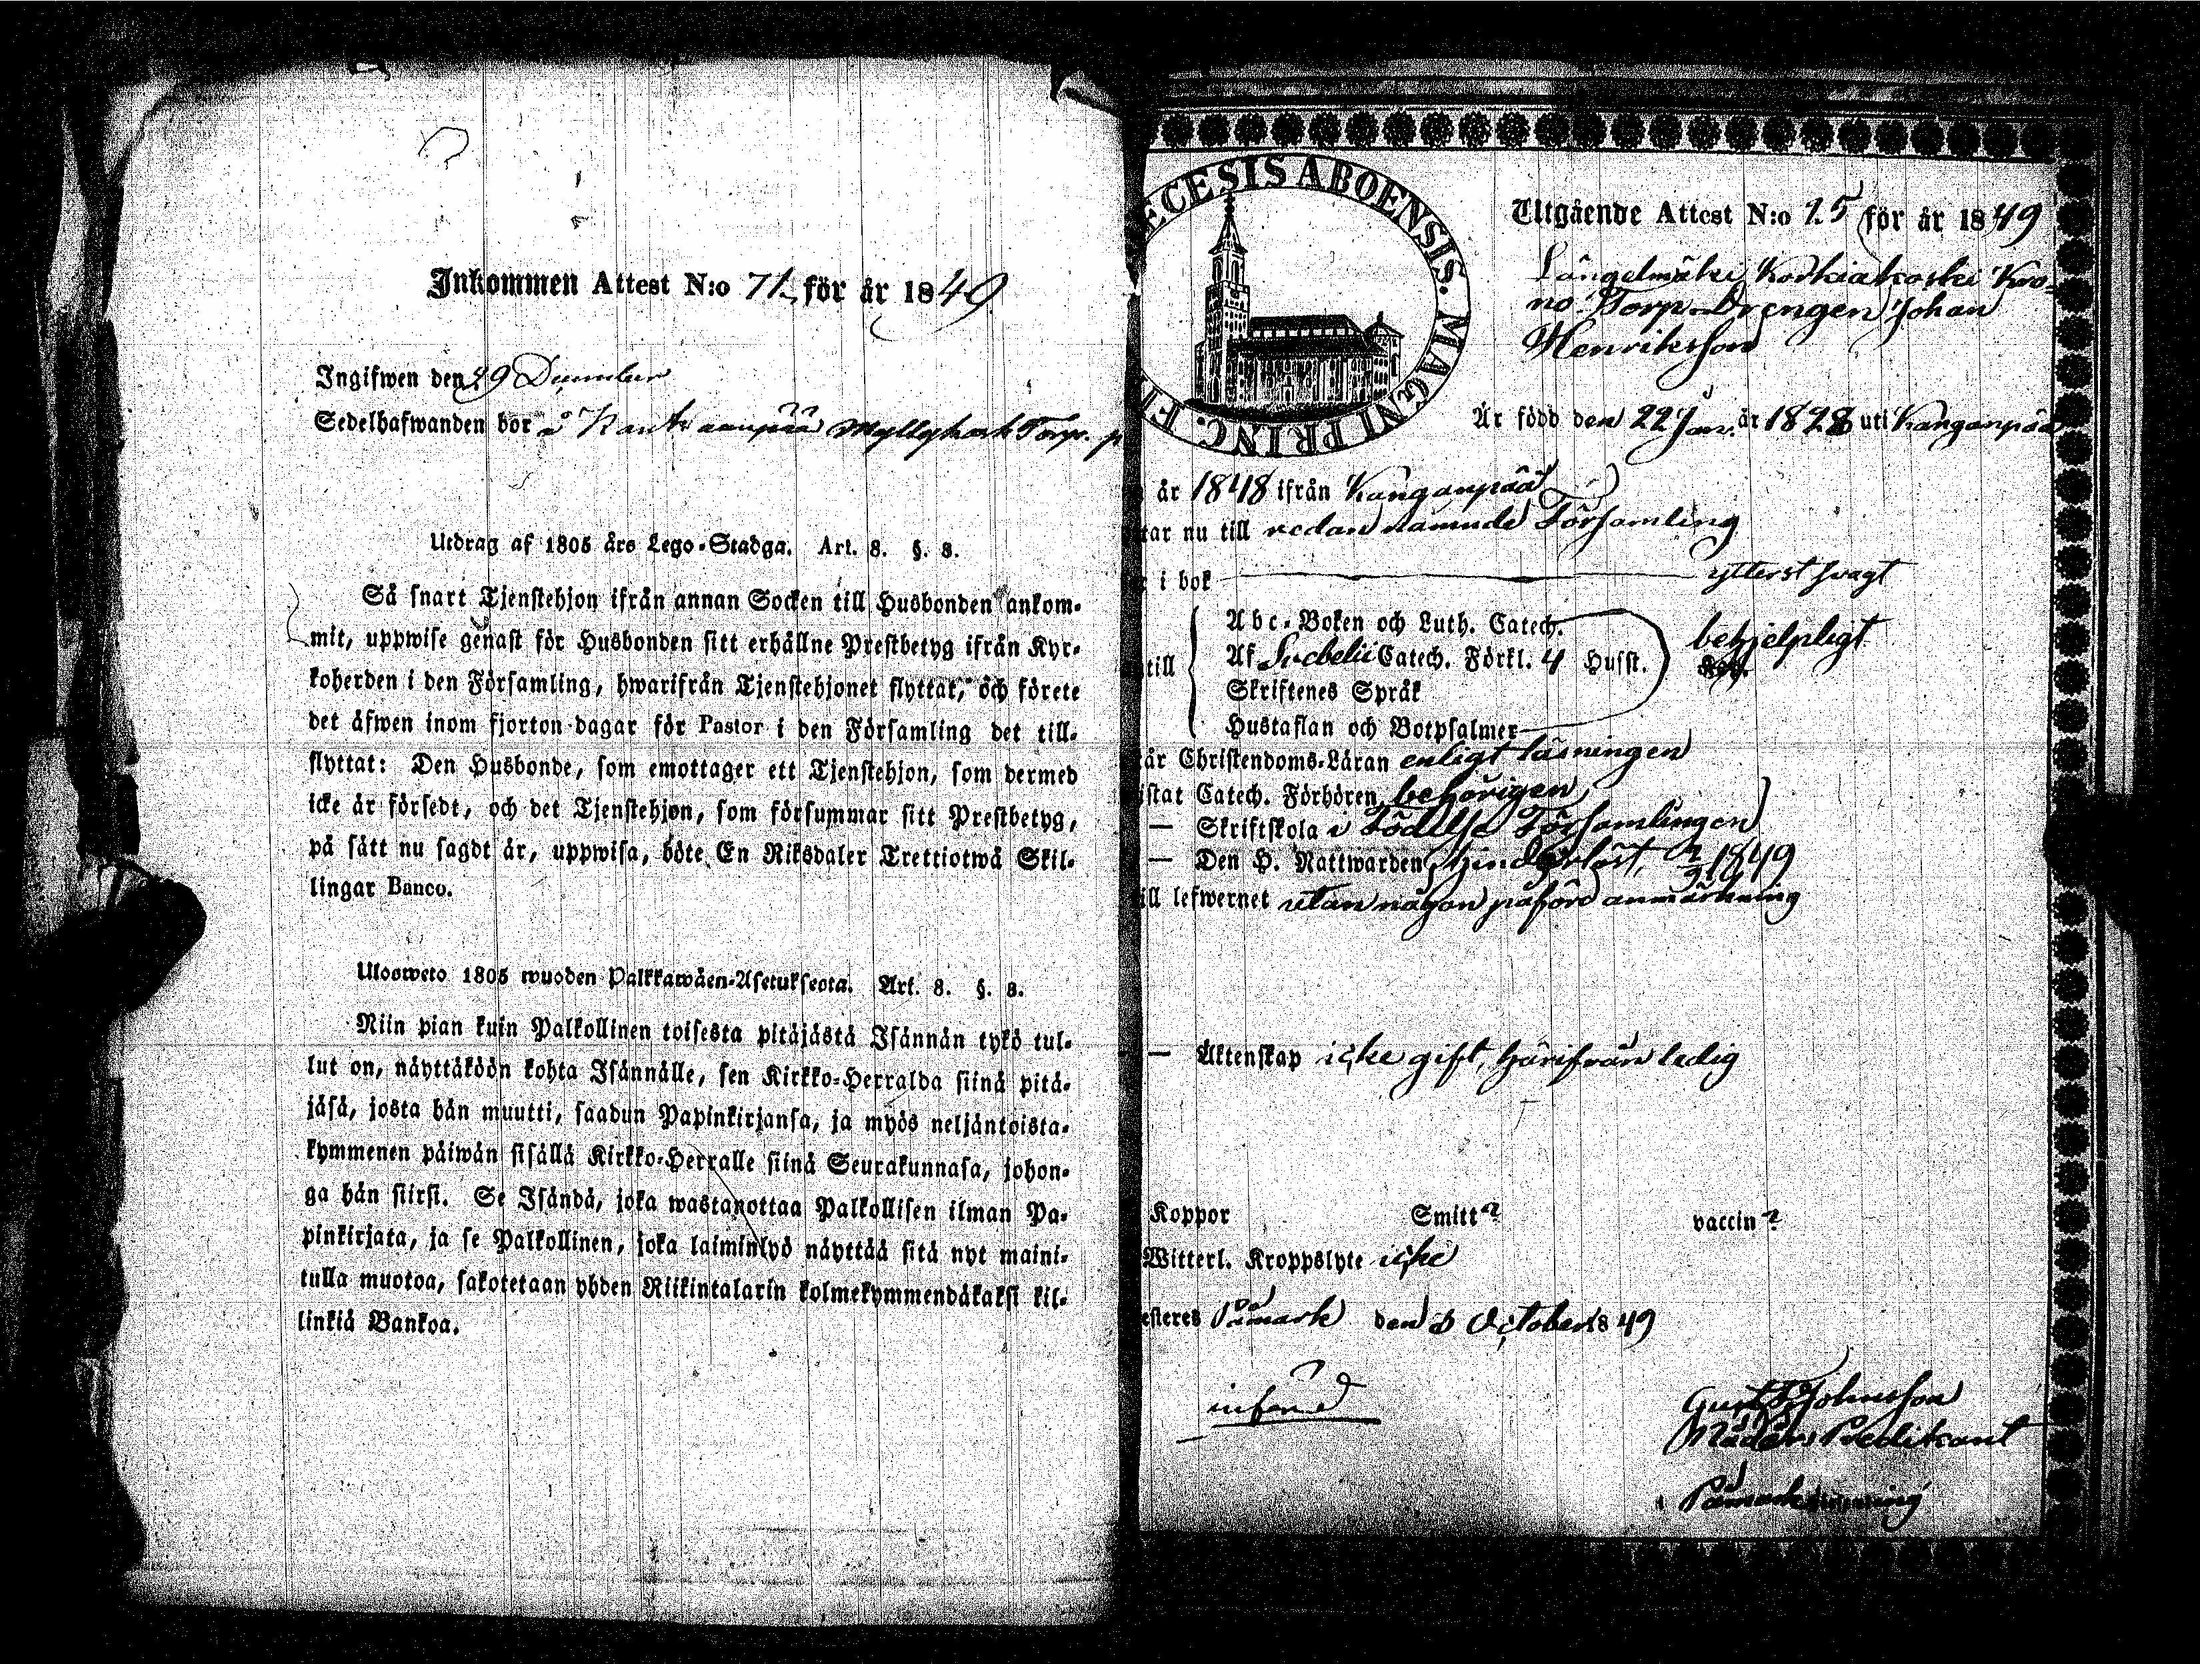 Inkommen Attest N:o 71 för år 1849.
Ingifwen den 29 December
Sedelhafwanden bor å Kankaanpää Myllykoski Torp.
Utdrag af 1805 års Lego-Stadga. Art. 8. §. 8.
Så snart Tjenstehjon ifrån annan Socken till Husbonden ankom-
mit, uppwise genast för Husbonden sitt erhållne Prestbetyg ifrån Kyr-
koherden i den Församling, hwarifrån Tjenstehjonet flyttat, och förete
det äfwen inom fjorton dagar för Pastor i den Församling det till-
flyttat: Den Husbonde, som emottager ett Tjenstehjon, som dermed
icke är försedt, och det Tjenstehjon, som försummar sitt Prestbetyg,
på sätt nu sagdt är, uppwisa, böte En Riksdaler Trettiotwå Skil-
lingar Banco.
Ulosweto 1805 wuoden Palkkawäen-Asetuksesta. Art. 8. §. 8.
Niin pian kuin Palkollinen toisesta pitäjästä Isännän tykö tul-
lut on, näyttäköön kohta Isännälle, sen Kirkko-Herralda siinä pitä-
jäsä, josta hän muutti, saadun Papinkirjansa, ja myös neljäntoista-
kymmenen päiwän sisällä Kirkko-Herralle siinä Seurakunnasa, johon-
ga hän siirsi. Se Isändä, joka wastanottaa Palkollisen ilman Pa-
pinkirjata, ja se Palkollinen, joka laiminlyö näyttää sitä nyt maini-
tulla muotoa, sakotetaan yhden Riikintalarin kolmekymmendäkaksi kil-
linkiä Bankoa.
ECESIS ABOENSIS. MAGNI PRINC. FI
Utgående Attest N:o 15 för år 1849
Längelmäki Korkiakoski Kro-
no Torp. Drengen Johan
Henriksson
Är född den 22 Jan. år 1828 uti Kanganpää
år 1848 ifrån Kanganpää
tar nu till redan nämnde Församling
i bok ytterst svagt
Abc-Boken och Luth. Catech.
till Af Svebelii Catech. Förkl. 4 Husst. behjelpligt
Skriftenes Språk
Hustaflan och Botpsalmer
år Christendoms-Läran enligt läsningen
istat Catech. Förhören behörigen
— Skriftskola i Födelse Församlingen
— Den H. Nattwarden hinderlöst, 1849
ill lefwernet utan någon påförd anmärkning
— Äktenskap icke gift, härifrån ledig
Koppor Smitt vaccin
Witterl. Kroppslyte icke
esteres Påmark den 3 October 1849
Gust. Johnsson
Predikant
Påmark